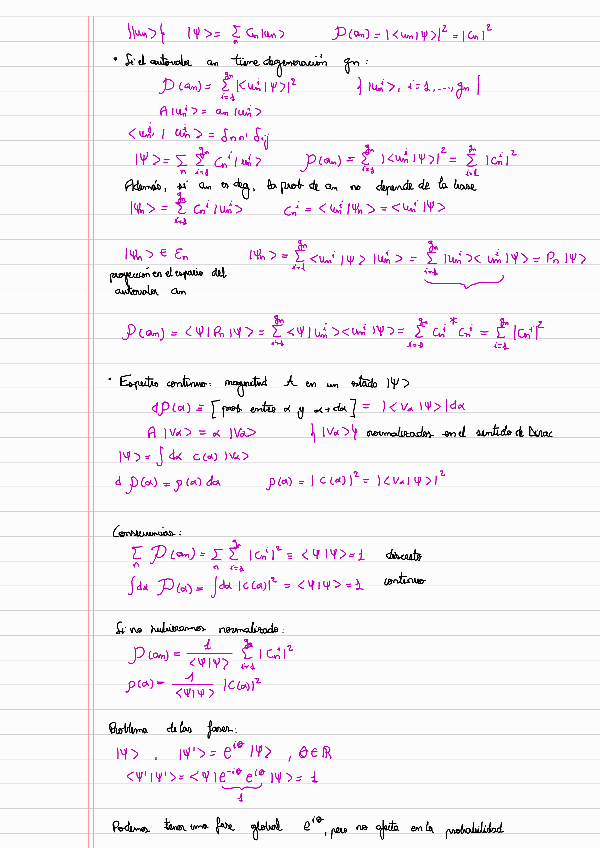 {|uₙ>} |ψ> = Σₙ cₙ|uₙ> P(aₙ) = |<uₙ|ψ>|² = |cₙ|²
· Si el autovalor aₙ tiene degeneración gₙ:
P(aₙ) = Σᵢ₌₁^gₙ |<uₙⁱ|ψ>|² {|uₙⁱ>, i=1,...,gₙ}
A|uₙⁱ> = aₙ|uₙⁱ>
<uₙ'ʲ|uₙⁱ> = δₙₙ' δᵢⱼ
|ψ> = Σₙ Σᵢ₌₁^gₙ cₙⁱ|uₙⁱ> P(aₙ) = Σᵢ₌₁^gₙ |<uₙⁱ|ψ>|² = Σᵢ₌₁^gₙ |cₙⁱ|²
Además, si aₙ es deg, la prob de aₙ no depende de la base
|ψₙ> = Σᵢ₌₁^gₙ cₙⁱ|uₙⁱ> cₙⁱ = <uₙⁱ|ψₙ> = <uₙⁱ|ψ>
|ψₙ> ∈ Ɛₙ |ψₙ> = Σᵢ₌₁^gₙ <uₙⁱ|ψ>|uₙⁱ> = Σᵢ₌₁^gₙ |uₙⁱ><uₙⁱ|ψ> = Pₙ|ψ>
proyección en el espacio del
autovalor aₙ
P(aₙ) = <ψ|Pₙ|ψ> = Σᵢ₌₁^gₙ <ψ|uₙⁱ><uₙⁱ|ψ> = Σᵢ₌₁^gₙ cₙⁱ* cₙⁱ = Σᵢ₌₁^gₙ |cₙⁱ|²
· Espectro continuo: magnitud A en un estado |ψ>
dP(α) = [prob entre α y α+dα] = |<vα|ψ>|dα
A|vα> = α|vα> {|vα>} normalizados en el sentido de Dirac
|ψ> = ∫dα c(α)|vα>
dP(α) = ρ(α)dα ρ(α) = |c(α)|² = |<vα|ψ>|²
Consecuencias:
Σₙ P(aₙ) = Σₙ Σᵢ₌₁^gₙ |cₙⁱ|² = <ψ|ψ> = 1 discreto
∫dα P(α) = ∫dα |c(α)|² = <ψ|ψ> = 1 continuo
Si no hubiéramos normalizado:
P(aₙ) = 1/<ψ|ψ> Σᵢ₌₁^gₙ |cₙⁱ|²
ρ(α) = 1/<ψ|ψ> |c(α)|²
Problema de las fases:
|ψ> , |ψ'> = e^iθ |ψ> , θ∈ℝ
<ψ'|ψ'> = <ψ|e^-iθ e^iθ|ψ> = 1
1
Podemos tener una fase global e^iθ, pero no afecta en la probabilidad